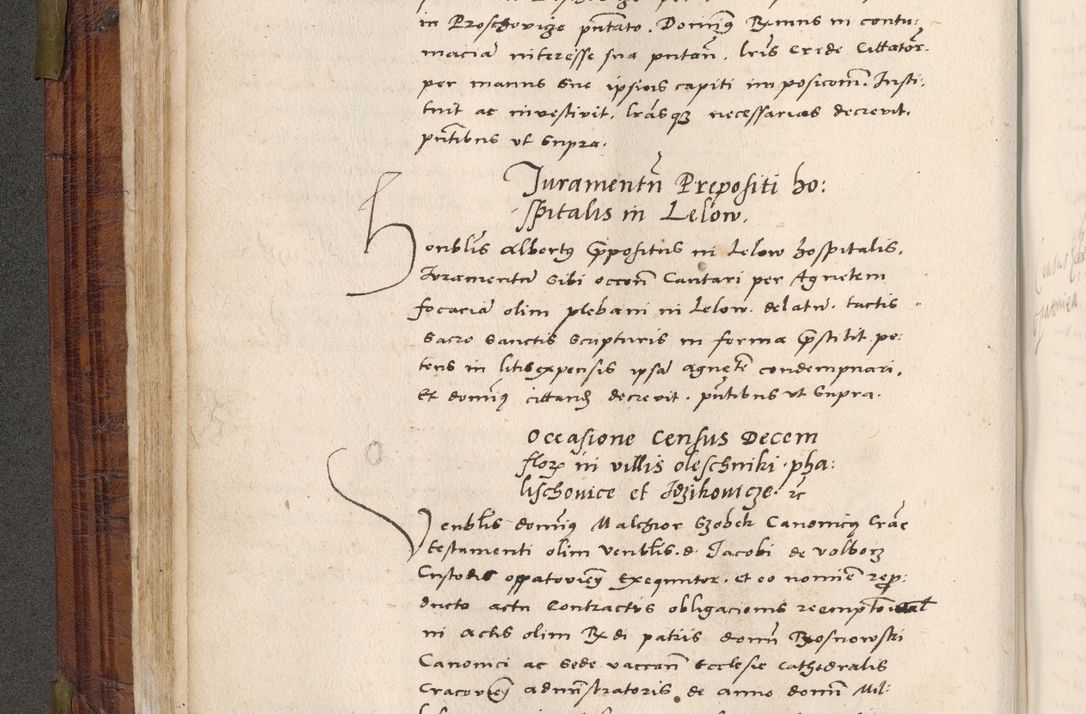 in Proschovize pntato. Dominus Rmus in contu-
macia interesse sua putan. lris crede Cittator.
per manus sue ipsius capiti impositom. Insti-
tuit ac investivit. lrasq necessarias decrevit.
pntibus ut supra.
Juramentu Prepositi ho:
spitalis in Lelow.
Honblis Albertus ppositus in Lelow hospitalis.
Juramentu sibi occon Cantari per Agnetem
focaria olim plebani in Lelow. delatu. tactis
sacro sanctis scripturis in forma pstitit pe:
tens in litisexpensis ipsa agnete condempnari.
Et dominus cittand decrevit. pntibus ut supra.
Occasione Census Decem
flor in villis oleschniki pha:
lischovice et Idzikovicze. etc
Venblis dominus Malchior Szobek Canonicus Crac
testamenti olim venblis. d. Jacobi de volborz
Custodis oppatovien exequutor. et eo nomie rep:
ducto actu Contractis obligacionis
in actis olim Rx di patris domini Brosnowski
Canonici ac sede vaccan Ecclesie Cathedralis
Cracovien administratoris de anno domini Mil-